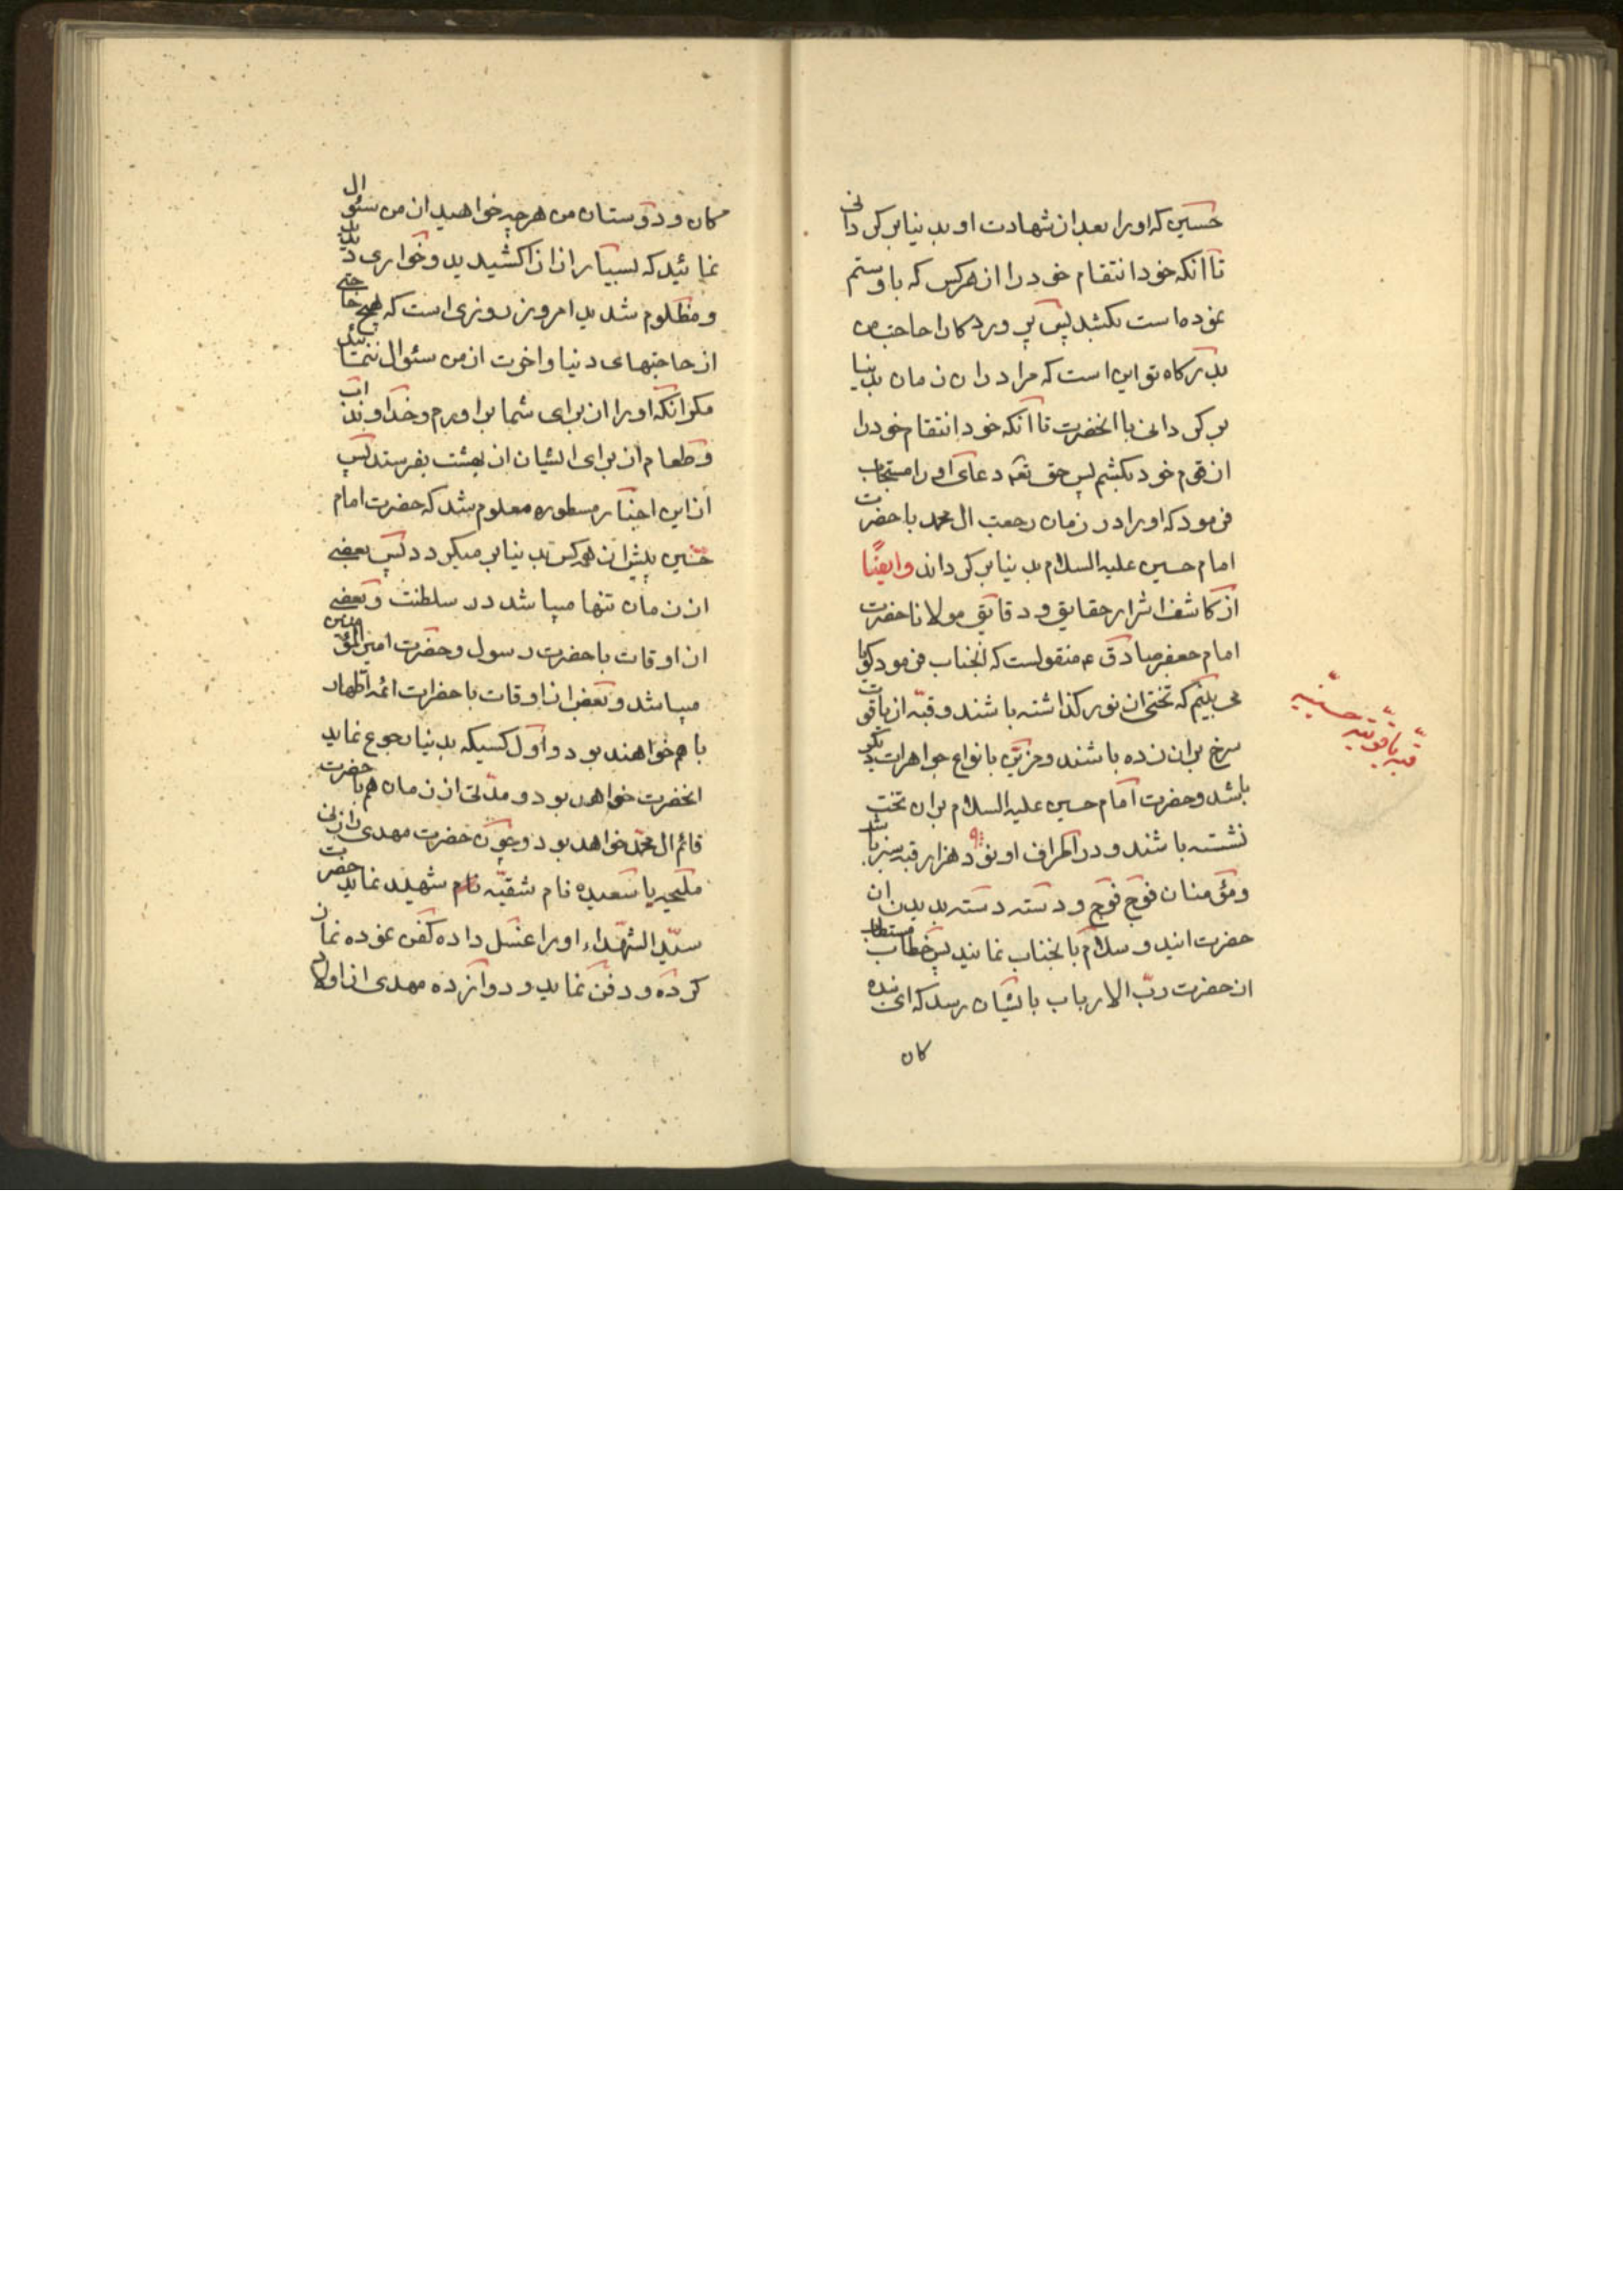 حسین که او را بعد از شهادت او بدنیا بر کردانی
تا آنکه خود انتقام خود را از هر کس که باو ستم
نموده است بکشد پس پروردکارا حاجت من
بدرکاه تو این است که مرا در ان زمان بدنیا
بر کردانی با انحضرت تا آنکه خود انتقام خود را
از قوم خود بکشم پس حق تعه دعای او را مستجاب
فرمود که او را در زمان رجعت ال محمد با حضرت
امام حسین علیه السلام بدنیا بر کرداند وایضًا
از کاشف اسرار حقایق و دقایق مولانا حضرت
امام جعفر صادق ع منقولست که آنجناب فرمود کویا
می بینم که تختی از نور کذاشته باشند و قبّه از یاقوت
سرخ بران زده باشند و مزیّن بانواع جواهرات دیکر
باشد و حضرت امام حسین علیه السلام بران تخت
نشسته باشند و در اطراف او نود هزار قبه سبز باشد
ومؤمنان فوج فوج و دسته دسته بدیدن ان
حضرت ایند و سلام بانجناب نمایند پس خطاب مستطاب
از حضرت ربّ الارباب بایشان رسد که ای بنده
کان
قبّه یاقوتیّه حسینیّه
کان و دوستان من هر چه خواهید از من سئوال
نمائید که بسیار ازار کشیدید و خواری دیدید
و مظلوم شدید امروز روزی است که هیچ حاجتی
از حاجتهای دنیا و اخرت از من سئوال ننمائید
مکر انکه او را از برای شما براورم و خداوند اب
و طعام از برای ایشان از بهشت بفرستد پس
از این اخبار مسطوره معلوم شد که حضرت امام
حسین پیش از هر کس بدنیا بر میکردد پس بعضی
از زمان تنها میباشد در سلطنت و بعضی
از اوقات با حضرت رسول و حضرت امیر المؤمنین
میباشد و بعض از اوقات با حضرات ائمه اطهار
با هم خواهند بود و اول کسیکه بدنیا رجوع نماید
انحضرت خواهد بود و مدّتی از زمان هم با حضرت
قائم ال محمّد خواهد بود و چون حضرت مهدی را زنی
ملیحه یا سعیده نام شقیّه نام شهید نماید حضرت
سیّد الشهداء او را غسل داده کفن نموده نماز
کرده و دفن نماید و دوازده مهدی از اولاد